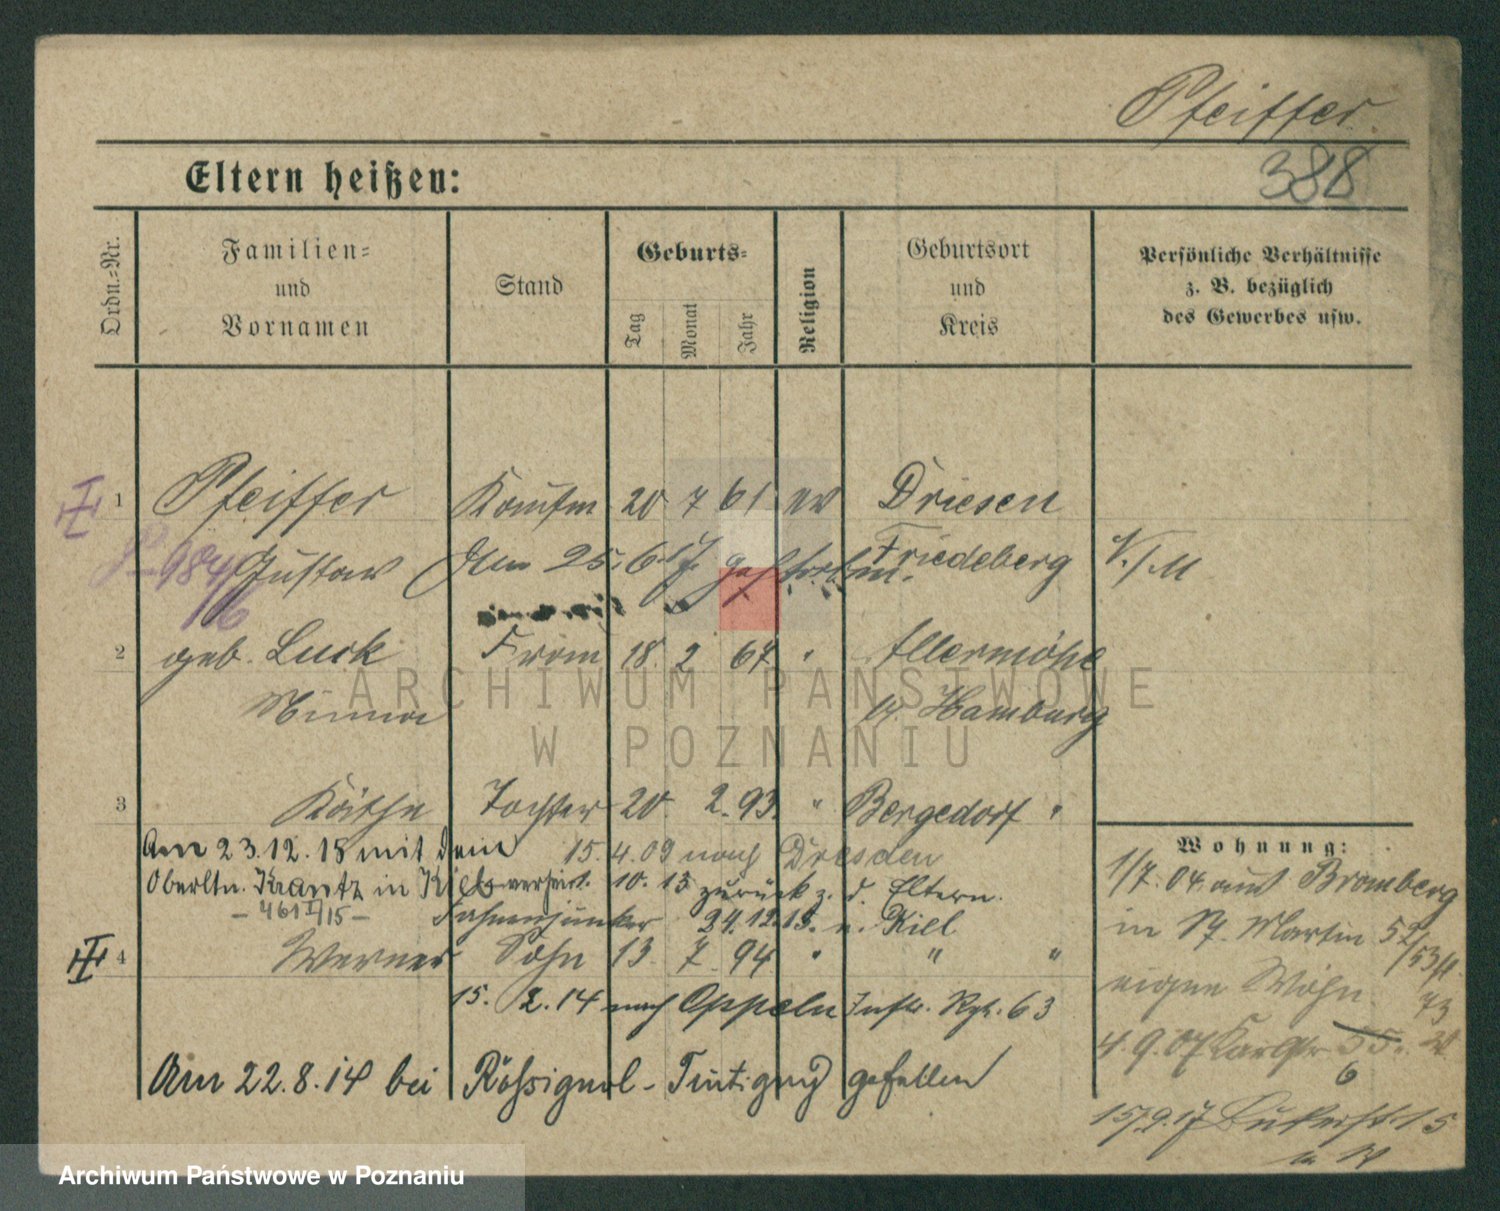 Pfeiffer
388
Eltern heißen:
Ordn.=Nr.
Familien=
und
Vornamen
Stand
Geburts=
Tag
Monat
Jahr
Religion
Geburtsort
und
Kreis
Persönliche Verhältnisse
z. B. bezüglich
des Gewerbes usw.
1 Pfeiffer Kaufm 20 7 61 ev Driesen
Gustav Am 25.6.17. gestorben. Friedeberg V./M
2 geb. Luck Frau 18. 2 67 " Allermöhe
Minna Hamburg
3 Käthe Tochter 20. 2. 93. " Bergedorf "
Am 23.12.15 mit dem 15.4.09 nach Dresden
Oberltn. Krantz in Kiel verheirt. 10.13 zurück z. d. Eltern.
- 461 II/15 - Fahnenjunker 24.12.15. n. Kiel
4 Werner Sohn 13 7. 94 " " "
15. 2. 14 nach Oppeln Inftr. Rgt. 63
Am 22.8.14 bei Rossignol - Tintigny gefallen
Wohnung:
1/7.04 aus Bromberg
in St. Martin 52/53
eigene Wohn
4.9.07 Karlstr
6
15/9.17 15
Archiwum Państwowe w Poznaniu
ARCHIWUM PAŃSTWOWE
W POZNANIU